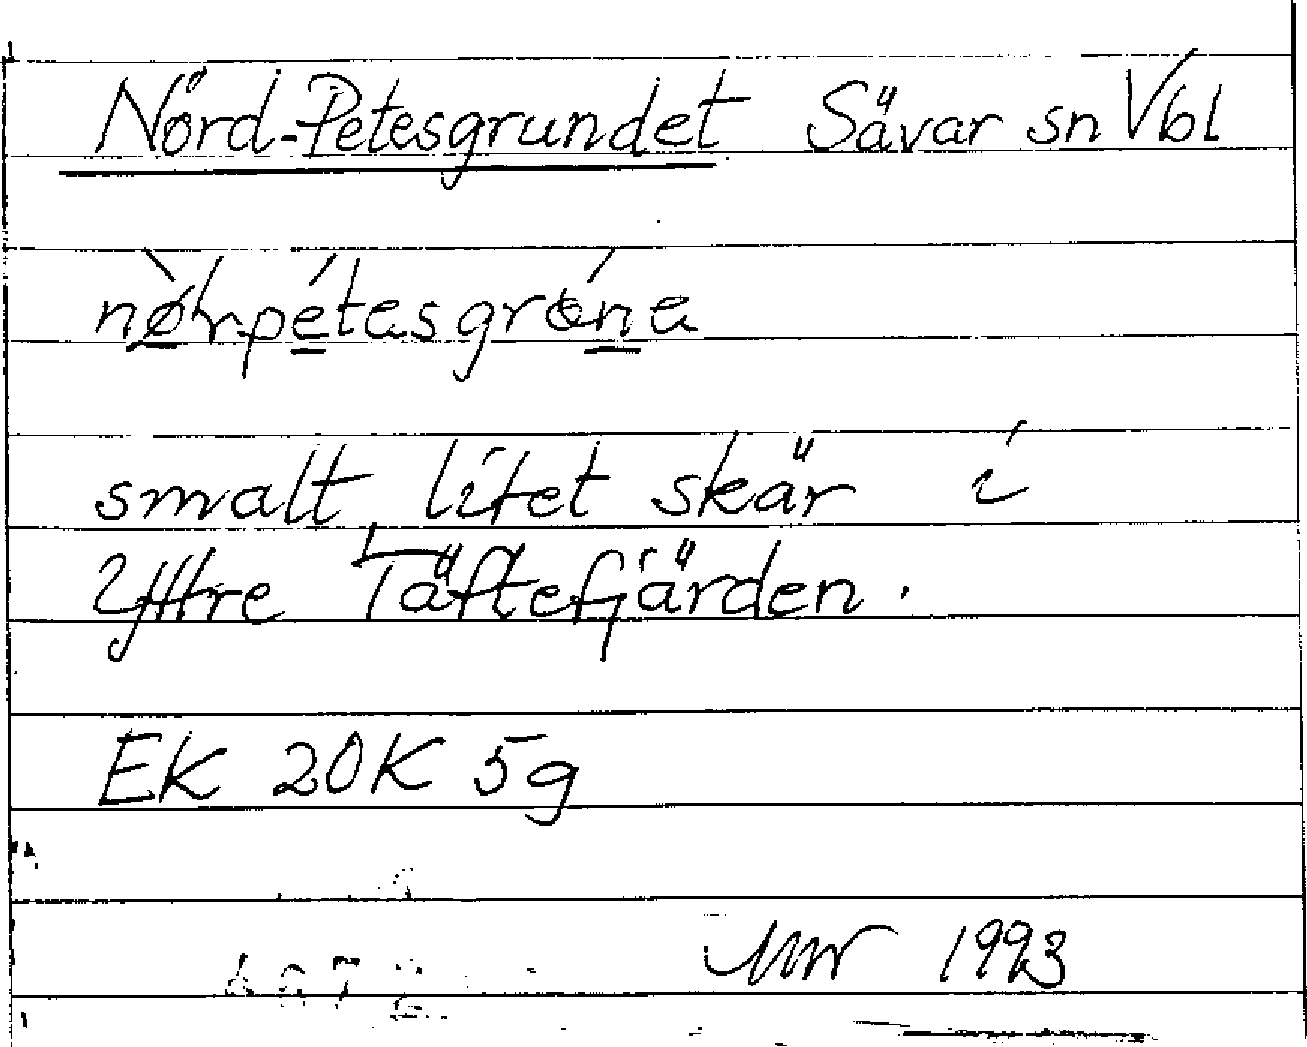 Nörd-Petesgrundet Sävar sn Vbl
smalt, litet skär i
Yttre Täftefjärden.
EK 20K 5g
1993